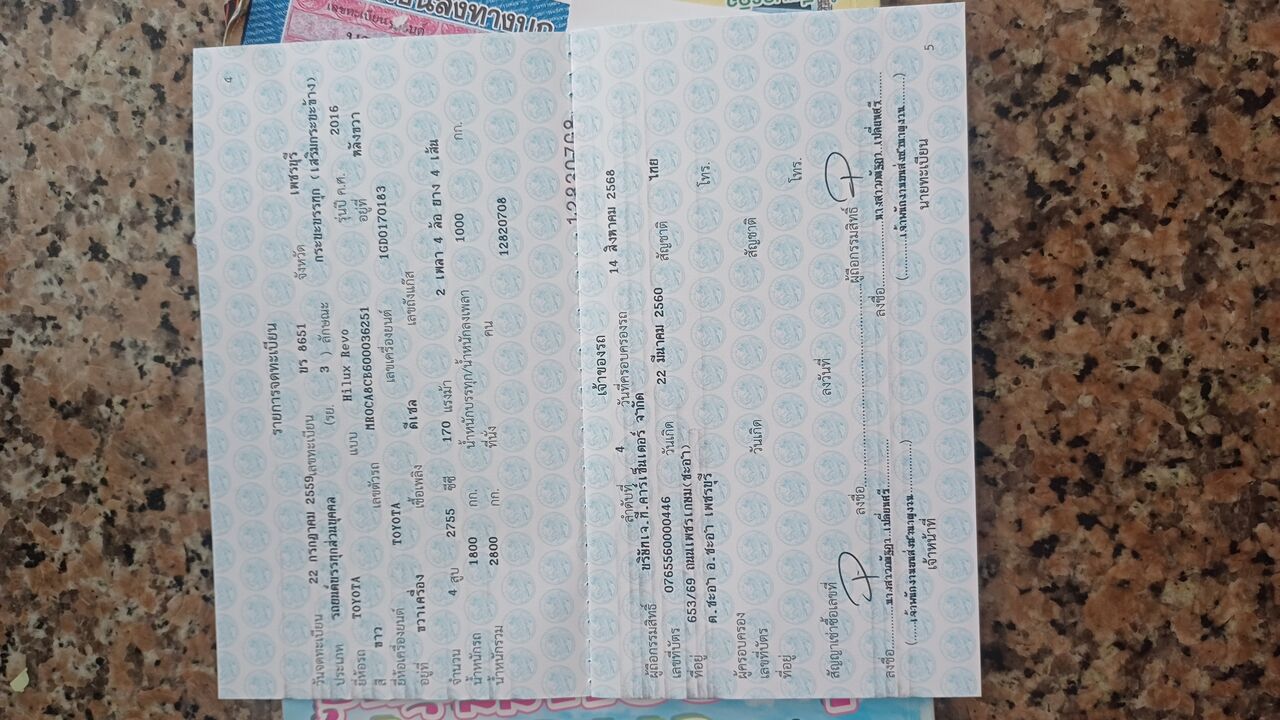 4
รายการจดทะเบียน
วันจดทะเบียน 22 กรกฎาคม 2559 เลขทะเบียน ขร 8651 จังหวัด เพชรบุรี
ประเภท รถยนต์บรรทุกส่วนบุคคล (รย. 3 ) ลักษณะ กระบะบรรทุก (เสริมกระบะข้าง)
ยี่ห้อรถ TOYOTA แบบ Hilux Revo รุ่นปี ค.ศ. 2016
สี ขาว เลขตัวรถ MR0CA8CB600036251 อยู่ที่ หลังขวา
ยี่ห้อเครื่องยนต์ TOYOTA เลขเครื่องยนต์ 1GD0170183
อยู่ที่ ขวาเครื่อง เชื้อเพลิง ดีเซล เลขถังแก๊ส
จำนวน 4 สูบ 2755 ซีซี 170 แรงม้า 2 เพลา 4 ล้อ ยาง 4 เส้น
น้ำหนักรถ 1800 กก. น้ำหนักบรรทุก/น้ำหนักลงเพลา 1000 กก.
น้ำหนักรวม 2800 กก. ที่นั่ง คน 12820708
12820708
เจ้าของรถ
ลำดับที่ 4 วันที่ครอบครองรถ 14 สิงหาคม 2568
ผู้ถือกรรมสิทธิ์ บริษัทเจ.ที.คาร์เซ็นเตอร์ จำกัด
เลขที่บัตร 0765560000446 วันเกิด 22 มีนาคม 2560 สัญชาติ ไทย
ที่อยู่ 653/69 ถนนเพชรเกษม(ชะอำ) โทร.
ต.ชะอำ อ.ชะอำ เพชรบุรี
ผู้ครอบครอง
เลขที่บัตร วันเกิด สัญชาติ
ที่อยู่ โทร.
สัญญาเช่าซื้อเลขที่ ลงวันที่
ลงชื่อ ผู้ถือกรรมสิทธิ์
ลงชื่อ ลงชื่อ
เจ้าหน้าที่ นายทะเบียน
5